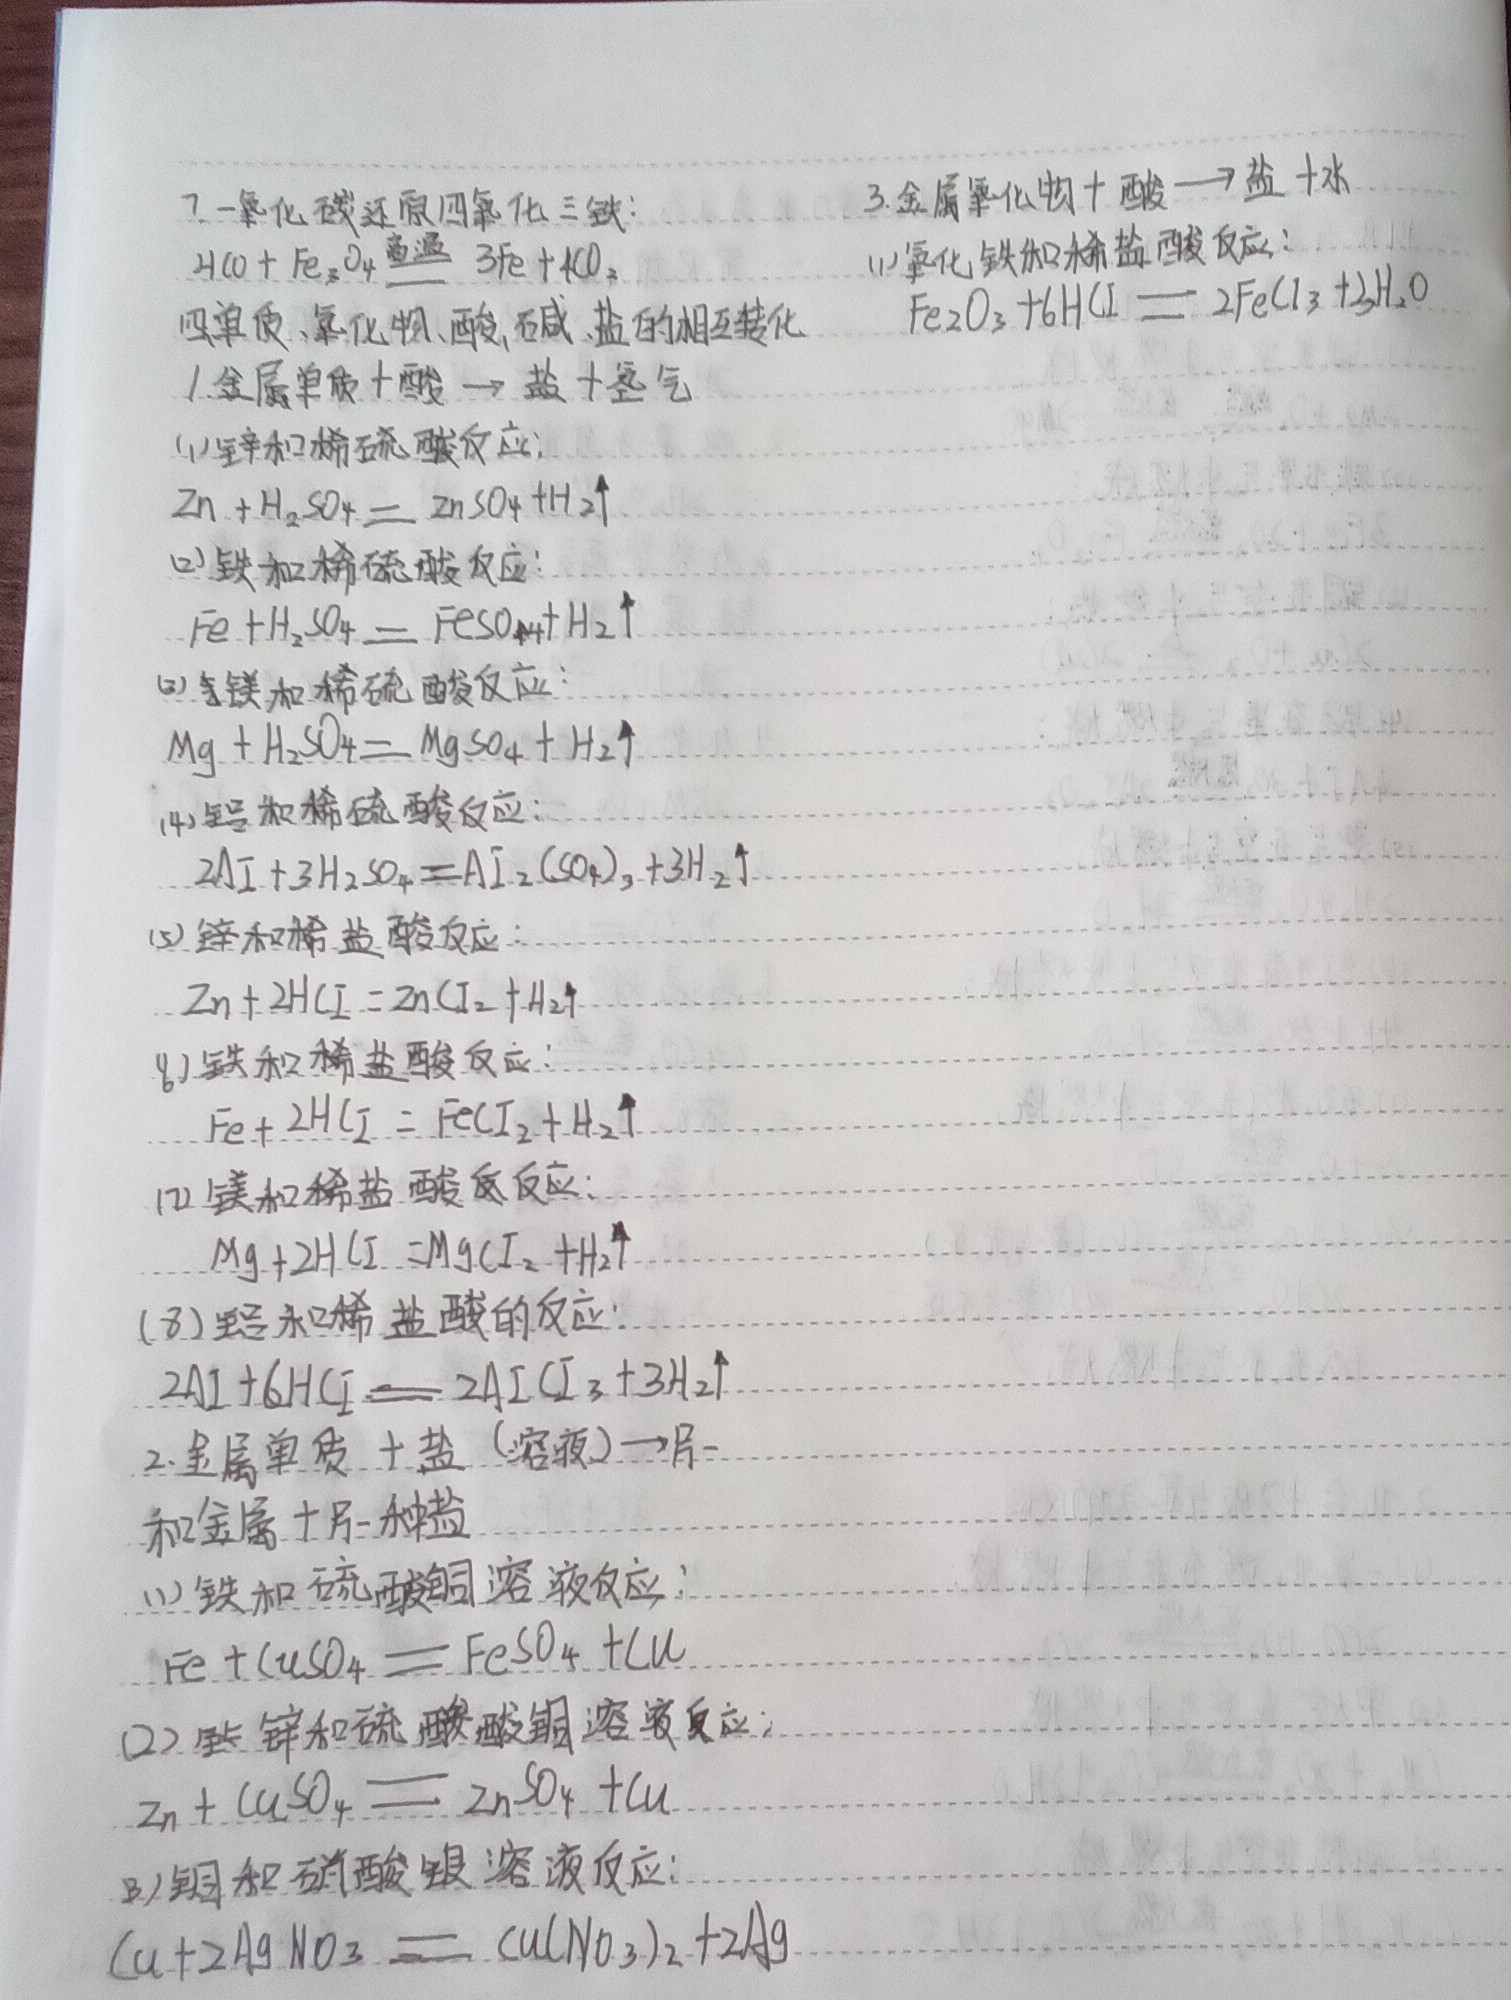 7.一氧化碳还原四氧化三铁:
4CO + Fe₃O₄ 高温 3Fe + 4CO₂
四单质、氧化物、酸、碱、盐的相互转化
1.金属单质 + 酸 → 盐 + 氢气
(1)锌和稀硫酸反应:
Zn + H₂SO₄ = ZnSO₄ + H₂↑
(2)铁和稀硫酸反应:
Fe + H₂SO₄ = FeSO₄ + H₂↑
(3)镁和稀硫酸反应:
Mg + H₂SO₄ = MgSO₄ + H₂↑
(4)铝和稀硫酸反应:
2Al + 3H₂SO₄ = Al₂(SO₄)₃ + 3H₂↑
(5)锌和稀盐酸反应:
Zn + 2HCl = ZnCl₂ + H₂↑
(6)铁和稀盐酸反应:
Fe + 2HCl = FeCl₂ + H₂↑
(7)镁和稀盐酸反应:
Mg + 2HCl = MgCl₂ + H₂↑
(8)铝和稀盐酸的反应:
2Al + 6HCl = 2AlCl₃ + 3H₂↑
2.金属单质 + 盐(溶液) → 另一
种金属 + 另一种盐
(1)铁和硫酸铜溶液反应:
Fe + CuSO₄ = FeSO₄ + Cu
(2)锌和硫酸酸铜溶液反应:
Zn + CuSO₄ = ZnSO₄ + Cu
(3)铜和硝酸银溶液反应:
Cu + 2AgNO₃ = Cu(NO₃)₂ + 2Ag
3.金属氧化物 + 酸 → 盐 + 水
(1)氧化铁和稀盐酸反应:
Fe₂O₃ + 6HCl = 2FeCl₃ + 3H₂O